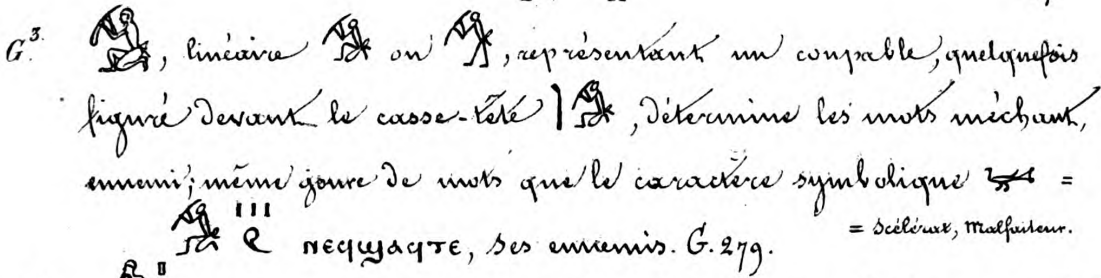 G³. , linéaire ou , représentant un coupable, quelquefois
figuré devant le casse-tête , détermine les mots méchant,
ennemi; même genre de mots que le caractère symbolique =
ⲛⲉϥϣⲁϥⲧⲉ, ses ennemis. G. 279. = Scélérat, Malfaiteur.